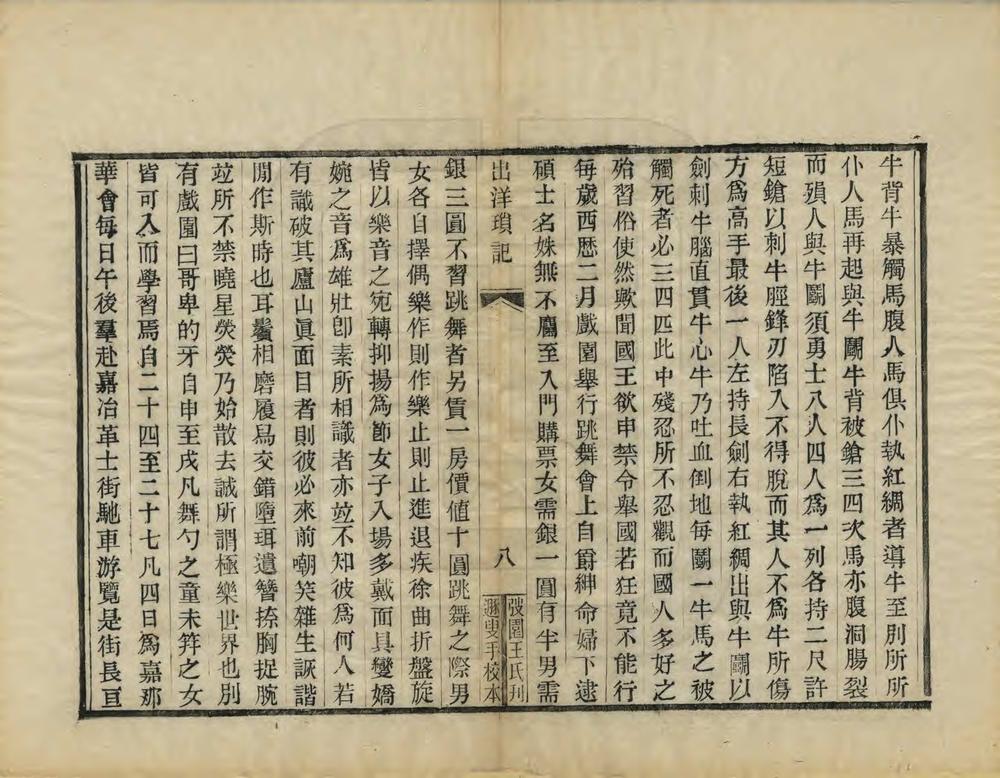 牛背牛暴觸馬腹人馬俱仆執紅綢者導牛至別所所
仆人馬再起與牛鬭牛背被鎗三四次馬亦腹洞腸裂
而殞人與牛鬭須勇士八人四人爲一列各持二尺許
短鎗以刺牛脛鋒刃陷入不得脫而其人不爲牛所傷
方爲高手最後一人左持長劍右執紅綢出與牛鬭以
劍刺牛腦直貫牛心牛乃吐血倒地每鬭一牛馬之被
觸死者必三四匹此中殘忍所不忍觀而國人多好之
殆習俗使然歟聞國王欲申禁令舉國若狂竟不能行
每歲西歷二月戲園舉行跳舞會上自爵紳命婦下逮
碩士名姝無不麕至入門購票女需銀一圓有半男需
出洋瑣記
八
弢園王氏刊
遯叟手校本
銀三圓不習跳舞者另賃一房價值十圓跳舞之際男
女各自擇偶樂作則作樂止則止進退疾徐曲折盤旋
皆以樂音之宛轉抑揚爲節女子入場多戴面具變嬌
婉之音爲雄壯卽素所相識者亦竝不知彼爲何人若
有識破其廬山眞面目者則彼必來前嘲笑雜生詼諧
閒作斯時也耳鬢相磨履舄交錯墮珥遺簪捺胸捉腕
竝所不禁曉星熒熒乃始散去誠所謂極樂世界也別
有戲園曰哥卑的牙自申至戌凡舞勺之童未笄之女
皆可入而學習焉自二十四至二十七凡四日爲嘉那
華會每日午後羣赴嘉冶革士街馳車游覽是街長亘